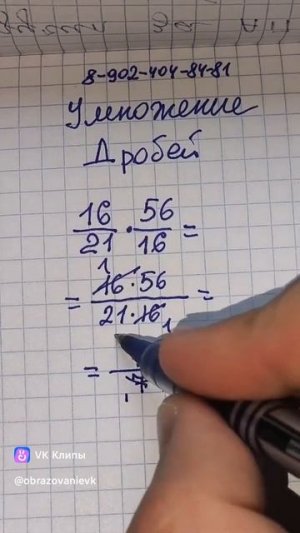 8-902-404-84-81
Умножение
Дробей
16/21 · 56/16 =
= 16·56/21·16 =
1
1
=
VK Клипы
@obrazovanievk